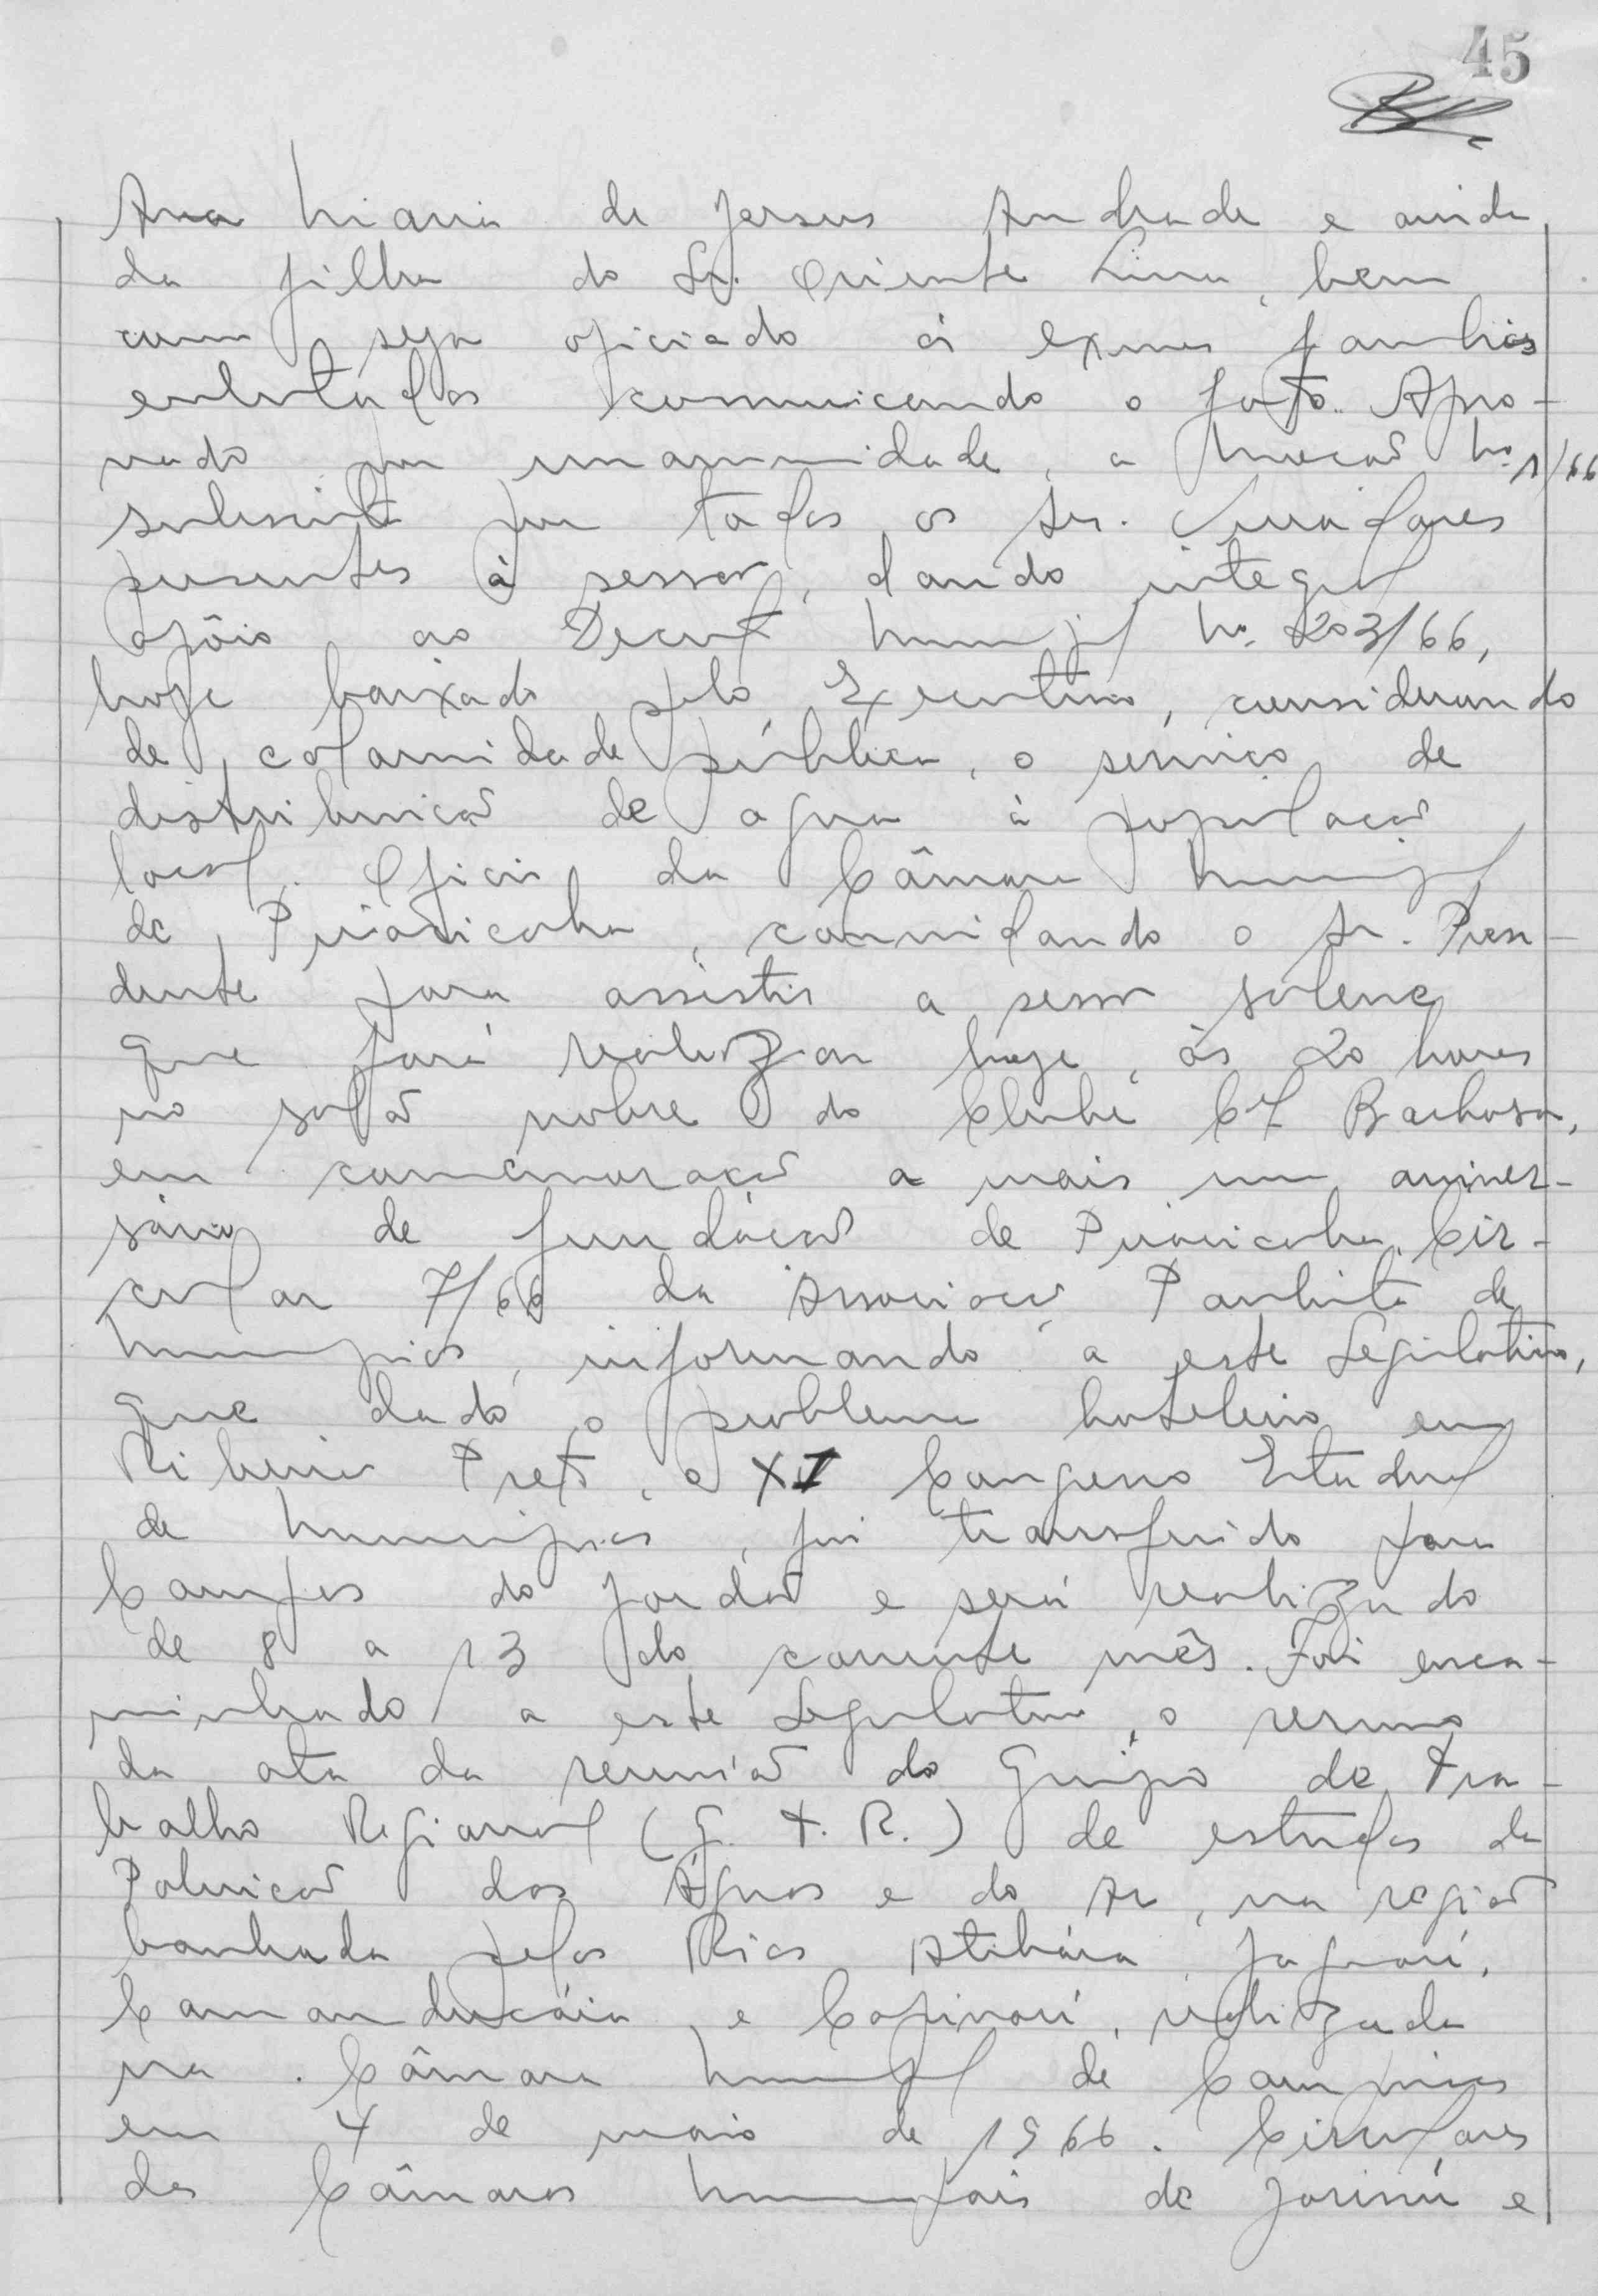 45
Ana Maria de Jesus Andrade e ainda
da filha do Sr. Oriente Lima, bem
como seja oficiado às exmas famílias
enlutadas comunicando o fato. Apro-
vado por unanimidade, a Moção No. 1/66
subscrita por todos os Srs. Vereadores
presentes à sessão, dando integral
apôio ao Decreto Municipal No. 203/66,
hoje baixado pelo Executivo, considerando
de calamidade pública, o serviço de
distribuição de agua à população
local. Oficio da Câmara Municipal
de Piracicaba, convidando o Sr. Presi-
dente para assistir a sessão solene
que fará realizar hoje, às 20 horas
no salão nobre do Clube Cel Barbosa,
em comemoração a mais um aniver-
sário de fundação de Piracicaba. Cir-
cular 7/66 da Associação Paulista de
Municípios, informando a este Legislativo,
que dado o problema hoteleiro em
Ribeirão Preto, o XI Congresso Estadual
de Municípios, foi transferido para
Campos do Jordão e será realizado
de 8 a 13 do corrente mês. Foi enca-
minhado a este Legislativo, o resumo
da ata da reunião do Grupo de Tra-
balho Regional (G. T. R.) de estudos da
Poluição das Águas e do Ar, na região
banhada pelos Rios Atibáia, Jaguarí,
Camanducáia e Capivarí, realizada
na Câmara Municipal de Campinas
em 4 de maio de 1966. Circulares
das Câmaras Municipais de Jarinú e